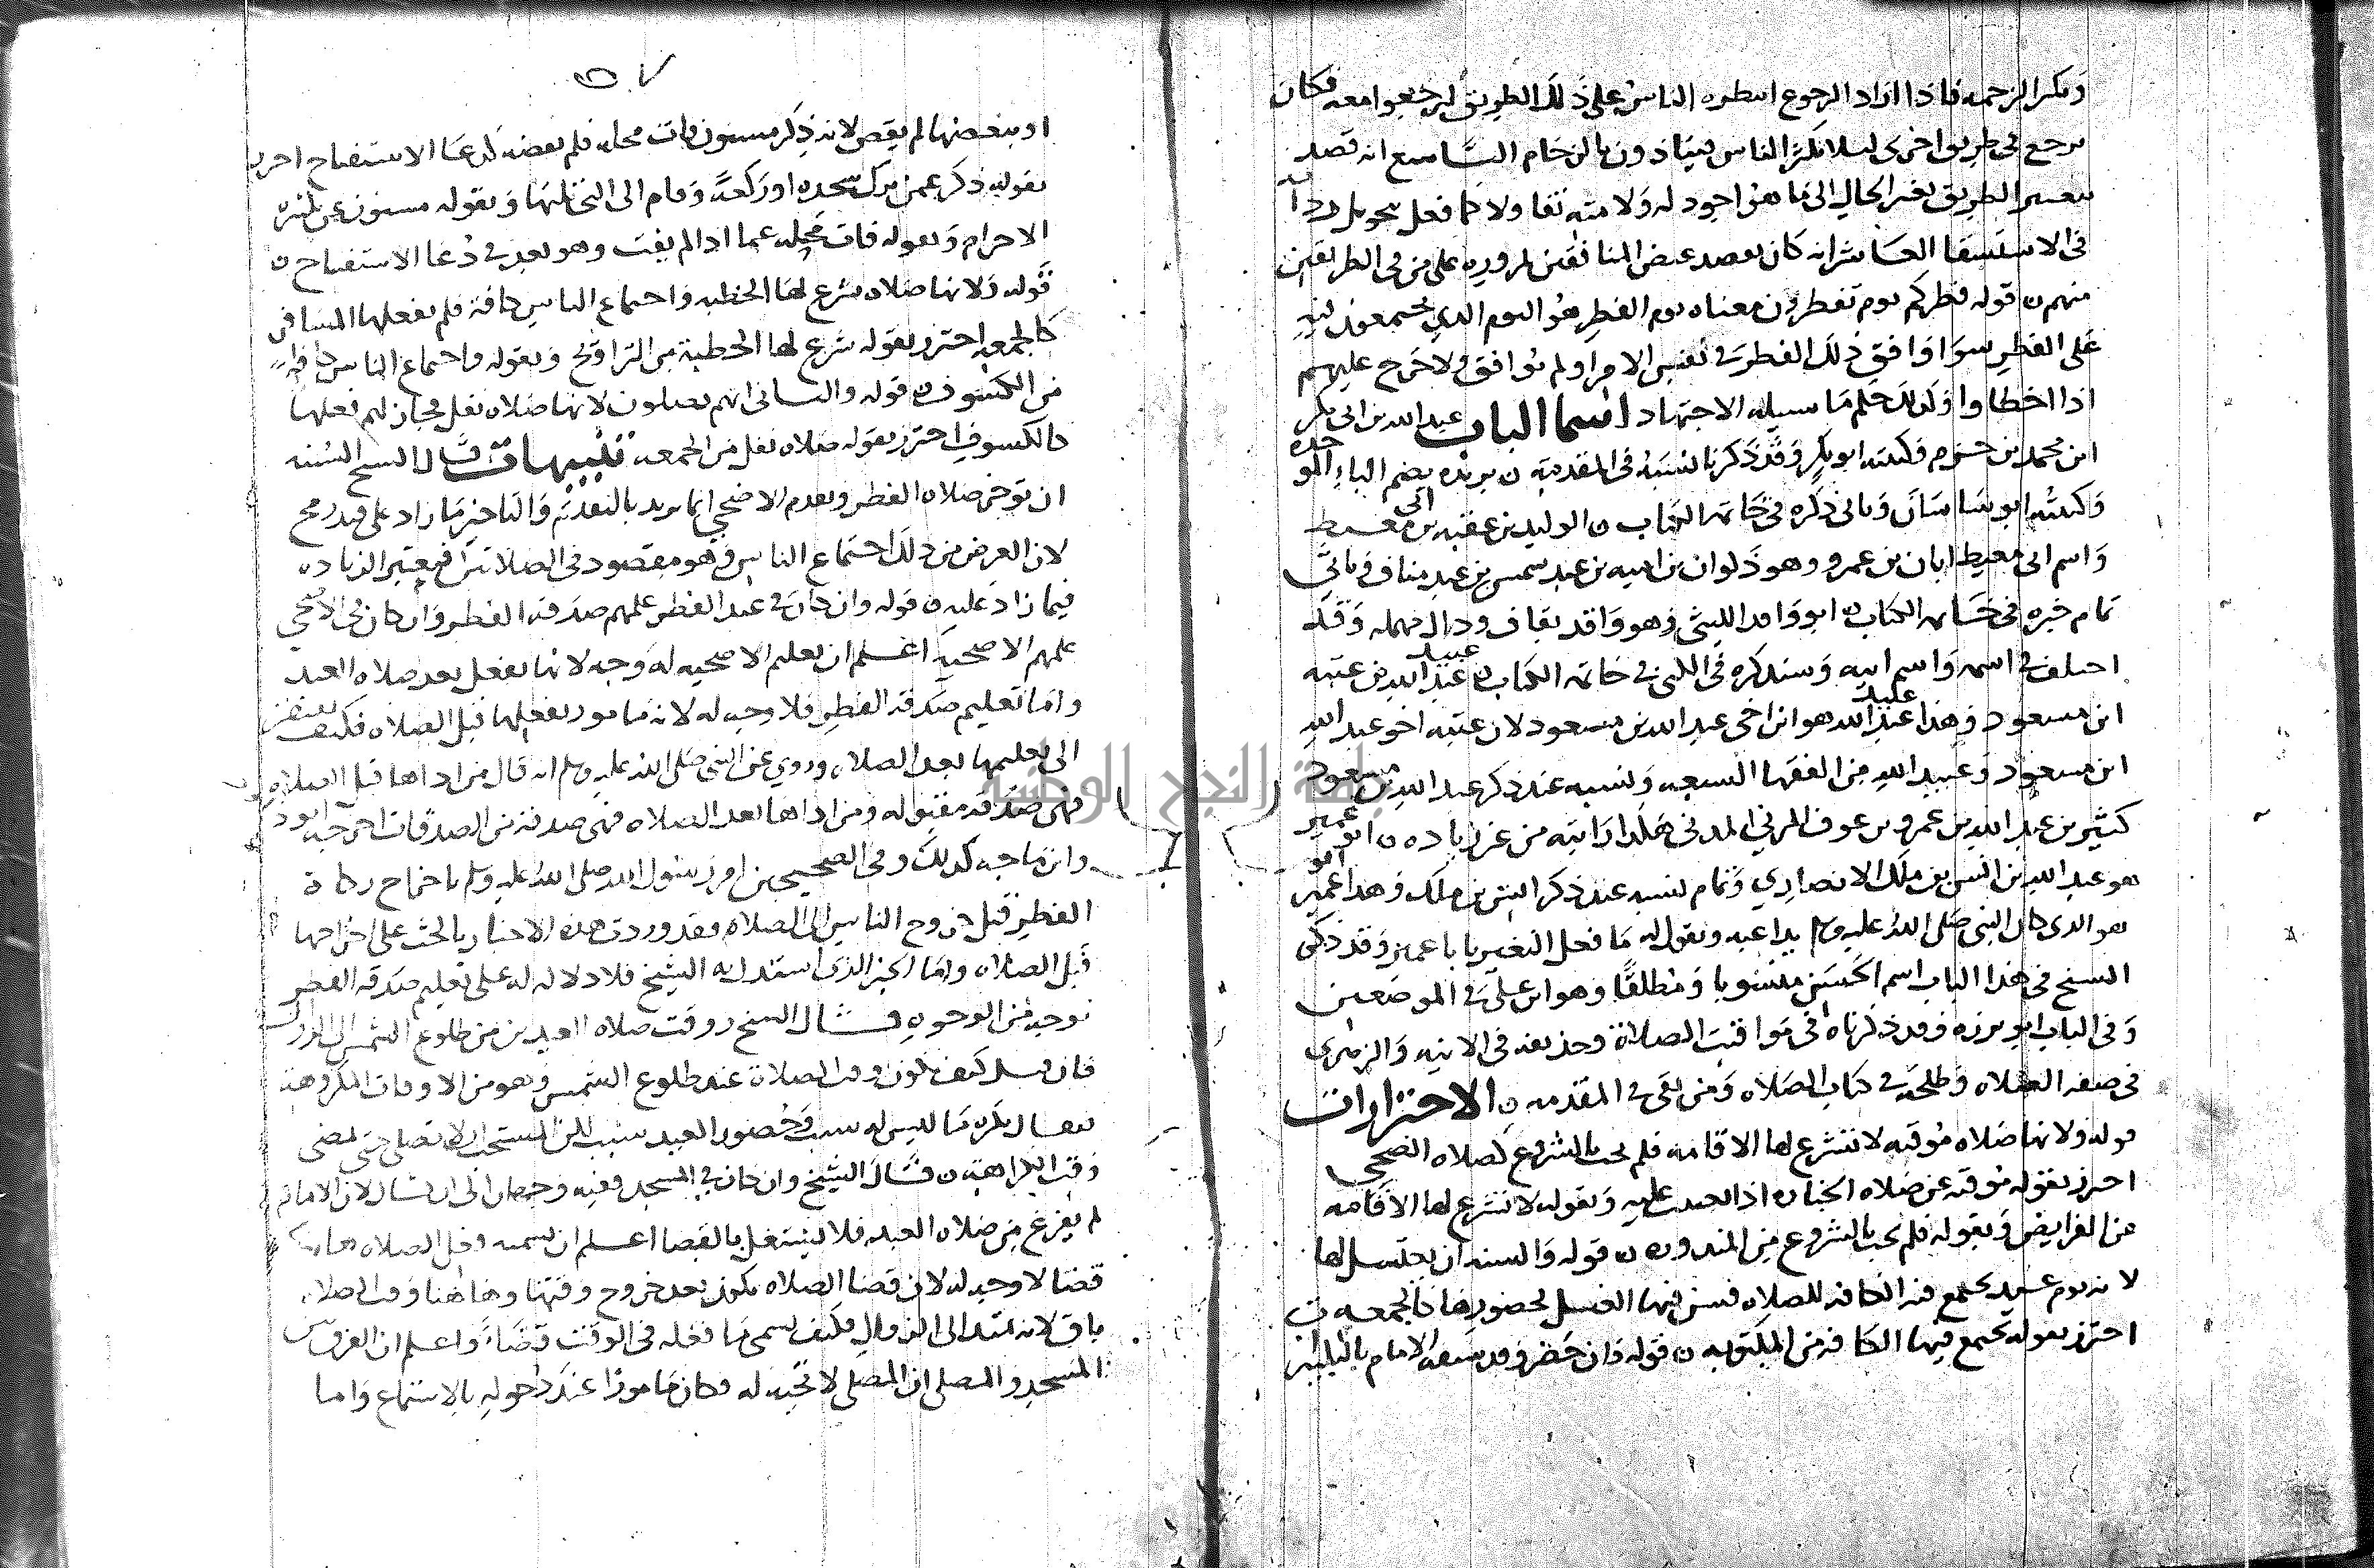 وتكثر الزحمه فاذا اراد الرجوع انتظره الناس على ذلك الطريق ليرجعوا معه فكان
يرجع في طريق اخرى ليلا يكثر الناس فيتادون بالزحام التاسع انه قصد
بتغيير الطريق تغير الحال الى ما هو اجود له ولامته تفاولا كما فعل بتحويل ردآيه
في الاستسقا العاشر انه كان يقصد غيض المنافقين لمروره على من في الطريقين
منهم ن قوله فطركم يوم تفطرون معناه يوم الفطر هو اليوم الذي يجتمعون فيه
على الفطر سوا وافق ذلك الفطر في نفس الامر او لم يوافق ولا حرج عليهم
اذا اخطاوا وكذلك حكم ما سبيله الاجتهاد اسما الباب عبد الله بن ابي بكر
ابن محمد بن حزم فكنيته ابو بكر وقد ذكرنا نسبه في المقدمة ن بريده بضم الباء الموحده
وكنيته ابو ساسان وياتي ذكره في خاتمة الكتاب ن الوليد بن عقبه بن ابي معيط
واسم ابي معيط ابان بن عمرو وهو ذكوان بن اميه بن عبد شمس بن عبد مناف وياتي
تمام خبره في خاتمه الكتاب ن ابو واقد الليثي فهو واقد بقاف ودال مهمله وقد
اختلف في اسمه واسم ابيه وسنذكره في الكنى في خاتمه الكتاب ن عبيد الله بن عتبه
ابن مسعود فهذا عبيد الله هو ابن اخي عبد الله بن مسعود لان عتبه اخو عبد الله
ابن مسعود وعبيد الله من الفقها السبعه ونسبه عند ذكر عبد الله بن مسعود
كثير بن عبد الله بن عمرو بن عوف المزني المدني هكذا رايته من غير زياده ن ابو عمير
هو عبد الله بن انس بن ملك الانصاري وتمام نسبه عند ذكر انس بن ملك وهذا ابو عمير
هو الذي كان النبي صلى الله عليه وسلم يداعبه ويقول له ما فعل النغير يا با عمير وقد ذكر
الشيخ في هذا الباب اسم الحسن منسوبا ومطلقا وهو ابن علي في الموضعين
وفي الباب ابو برزه وقد ذكرناه في مواقيت الصلاة وحذيفه في الانيه والزهري
في صفه الصلاه وطلحة في كتاب الصلاه ومن بقي في المقدمه ن الاحترازات
قوله ولانها صلاه موقته لا تشرع لها الاقامه فلم تجب بالشروع كصلاه الضحى
احترز بقوله موقته عن صلاه الجنازه اذا تعينت عليه وبقوله لا تشرع لها الاقامه
عن الفرايض وبقوله فلم تجب بالشروع من المنذوره ن قوله والسنه ان يغتسل لها
لانه يوم عيد يجتمع فيه الكافه للصلاه فسن فيها الغسل لحضورها كالجمعه ن
احترز بقوله يجتمع فيها الكافه من المكتوبه ن قوله فان حضر وقد سبقه الامام بالتكبير
٥٧
او ببعضها لم يقض لانه ذكر مسنون فات محله فلم يقضه كدعا الاستفتاح احترز
بقوله ذكر عمن ترك سجده او ركعة وقام الى التي تليها وبقوله مسنون عن تكبيره
الاحرام وبقوله فات محله عما اذا لم يفت وهو بعد في دعا الاستفتاح ن
قوله ولانها صلاه شرع لها الخطبه واجتماع الناس كافة فلم يفعلها المسافر
كالجمعه احترز بقوله شرع لها الخطبة من التراويح وبقوله واجتماع الناس كافة
من الكسوف ن قوله والثاني انهم يصلون لانها صلاه نفل فجاز لهم فعلها
كالكسوف احترز بقوله صلاه نفل من الجمعه تنبيهات قال الشيخ السنه
ان توخر صلاه الفطر ويقدم الاضحى انما يريد بالتقديم والتاخير ما زاد على قيد رمح
لان الغرض من ذلك اجتماع الناس وهو مقصود في الصلاتين فيعتبر الزياده
فيما زاد عليه ن قوله وان كان في عيد الفطر علمهم صدقه الفطر وان كان في الاضحى
علمهم الاضحيه اعلم ان تعليم الاضحيه له وجه لانها تفعل بعد صلاه العيد
واما تعليم صدقه الفطر فلا وجه له لانه مامور بفعلها قبل الصلاه فكيف يفتقر
الى تعليمها بعد الصلاه وروي عن النبي صلى الله عليه وسلم انه قال من اداها قبل الصلاه
فهي صدقه مقبوله ومن اداها بعد الصلاه فهي صدقه من الصدقات اخرجه ابو داود
وابن ماجه كذلك وفي الصحيحين امر رسول الله صلى الله عليه وسلم باخراج زكاة
الفطر قبل خروج الناس الى الصلاه وقد وردت هذه الاخبار بالحث على اخراجها
قبل الصلاه واما الخبر الذي استدل به الشيخ فلا دلاله له على تعليم صدقه الفطر
بوجه من الوجوه قال الشيخ ووقت صلاه العيدين من طلوع الشمس الى الزوال
فان قيل كيف يكون وقت الصلاة عند طلوع الشمس وهو من الاوقات المكروهة
يقال يكره ما ليس له سبب وحضور العيد سبب لكن المستحب ان لا تصلى حتى يمضي
وقت الكراهه ن قال الشيخ وان كان في المسجد ففيه وجهان الى ان قال لان الامام
لم يفرغ من صلاه العيد فلا يشتغل بالقضا اعلم ان تسميه فعل الصلاه هاهنا
قضا لا وجه له لان قضا الصلاه يكون بعد خروج وقتها وهاهنا وقت الصلاه
باق لانه ممتد الى الزوال فكيف يسمى ما فعله في الوقت قضاء واعلم ان الفرق بين
المسجد والمصلى ان المصلى لا تحيه له فكان مامورا عند دخوله بالاستماع واما
جامعة النجاح الوطنية